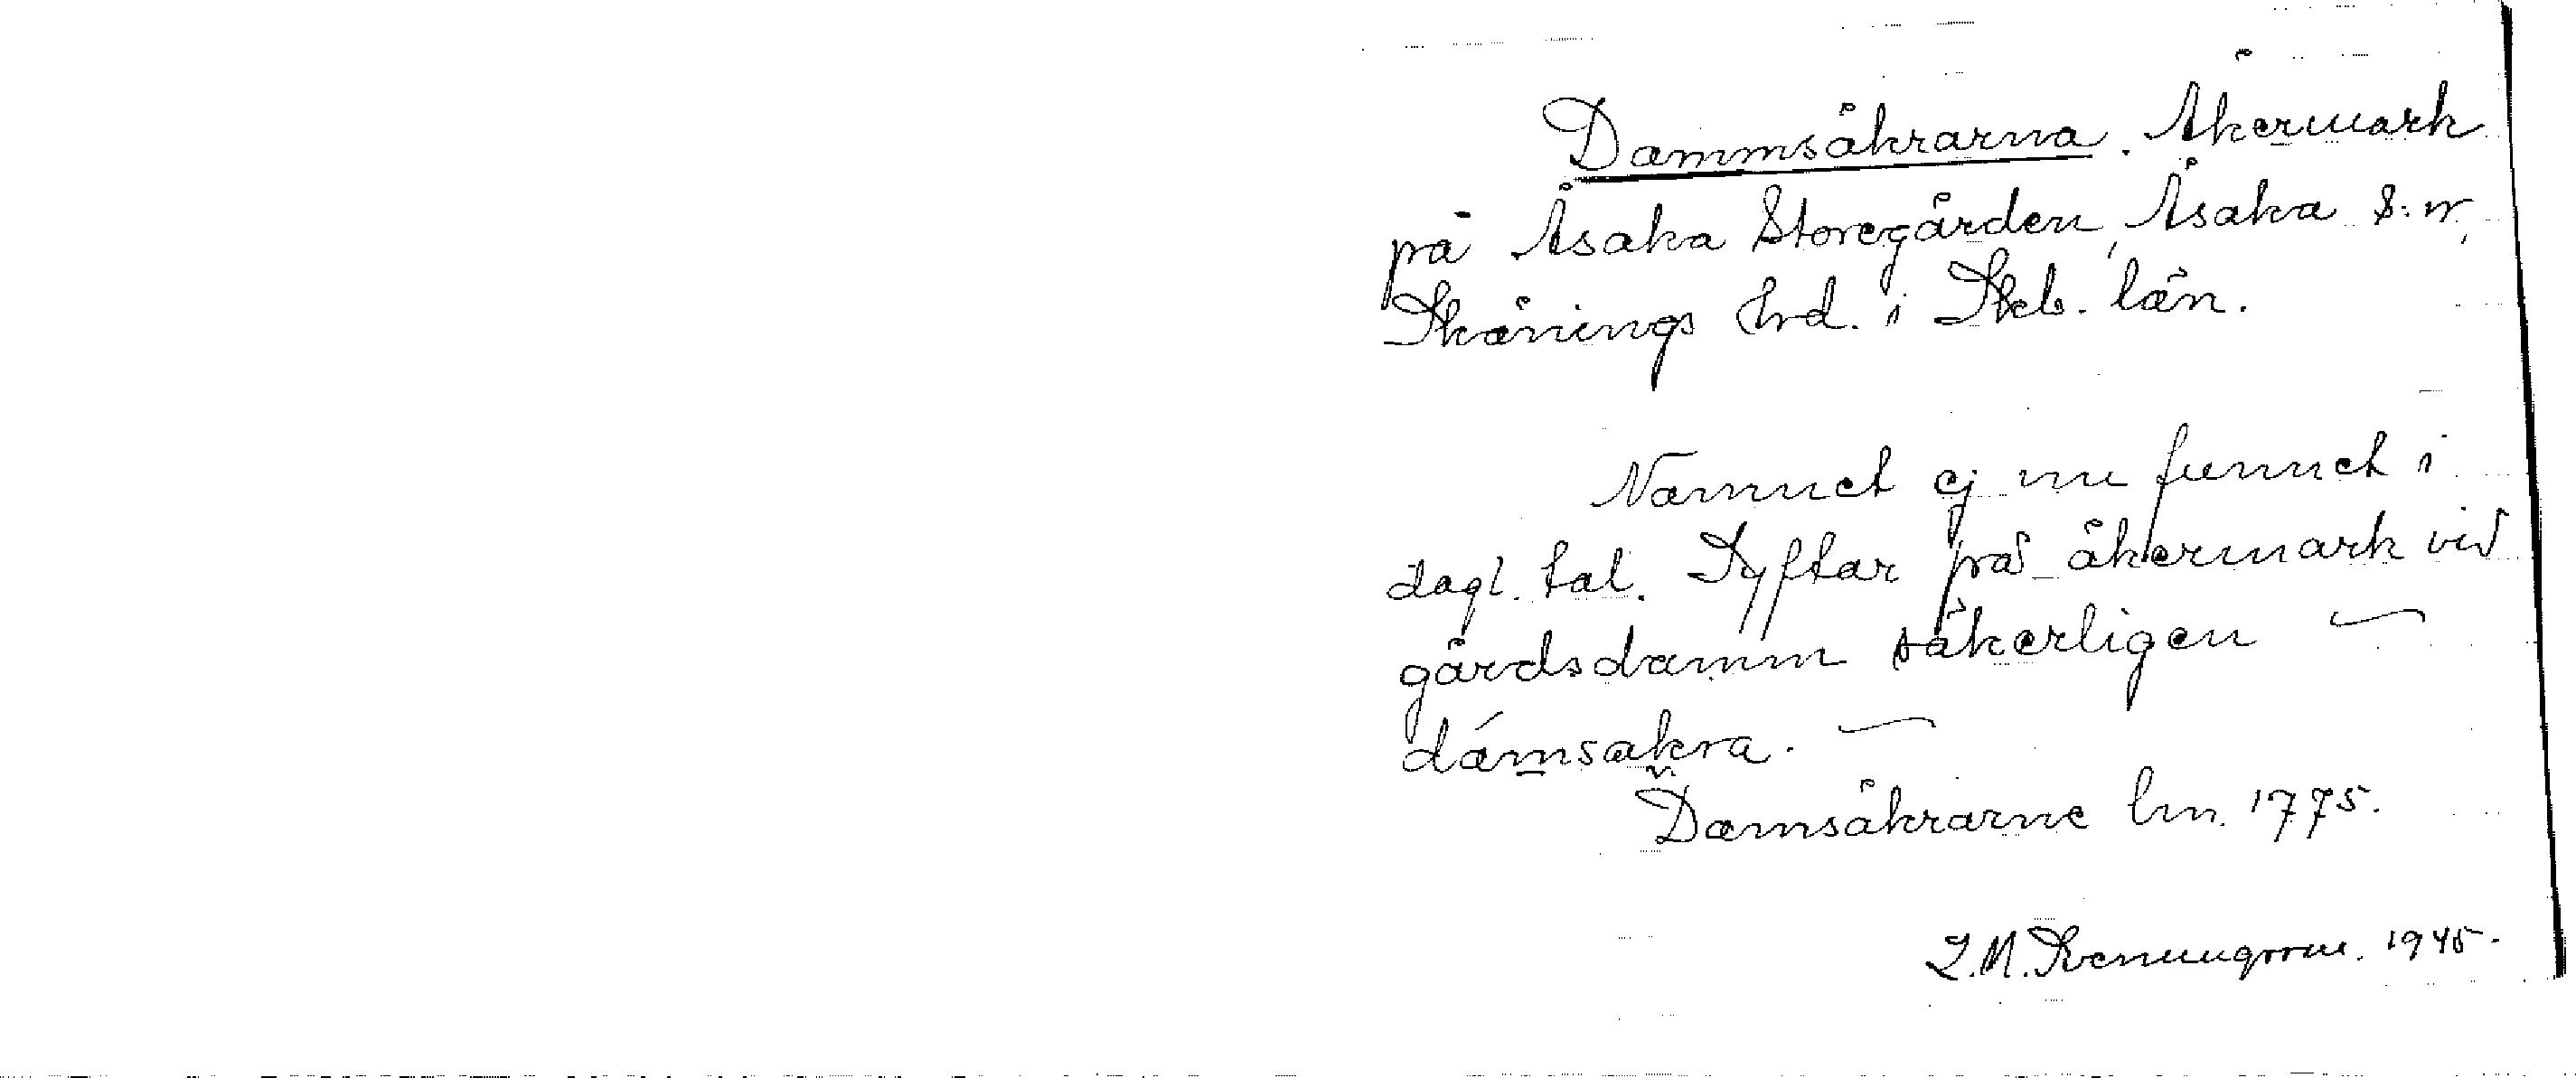 Dammsåkrarna. Åkermark
på Åsaka Storegården, Åsaka s:n,
Skånings hrd. i Skb. län.
Namnet ej nu funnet i
dagl. tal. Syftar på åkermark vid
gårdsdamm säkerligen —
dámsakra. —
Damsåkrarne lm. 1775.
1945.